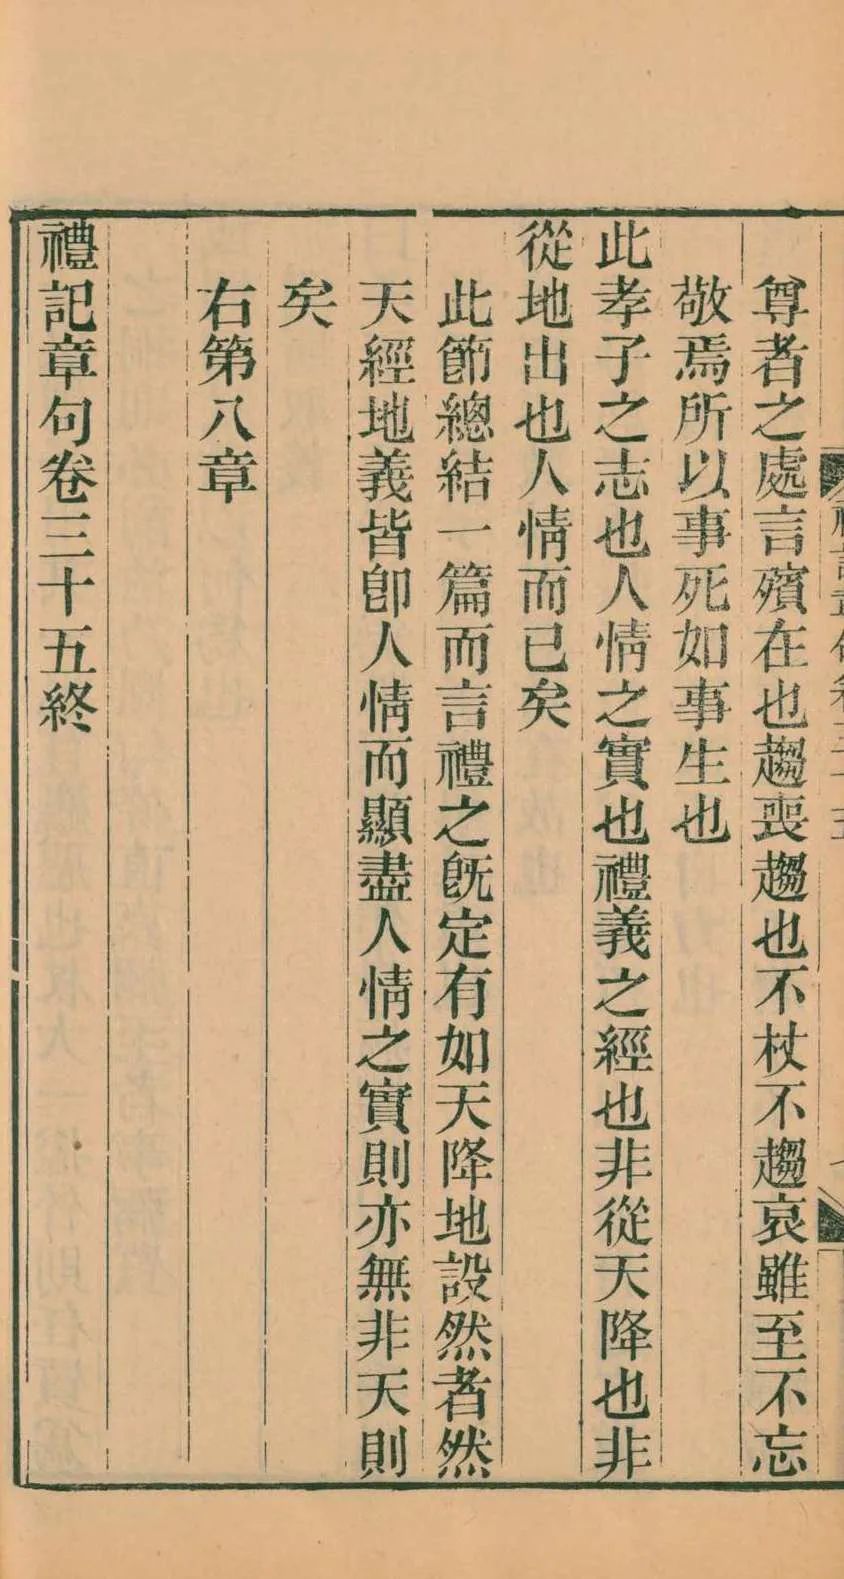 尊者之處言殯在也趨喪趨也不杖不趨哀雖至不忘
敬焉所以事死如事生也
此孝子之志也人情之實也禮義之經也非從天降也非
從地出也人情而已矣
此節總結一篇而言禮之旣定有如天降地設然者然
天經地義皆卽人情而顯盡人情之實則亦無非天則
矣
右第八章
禮記章句卷三十五終